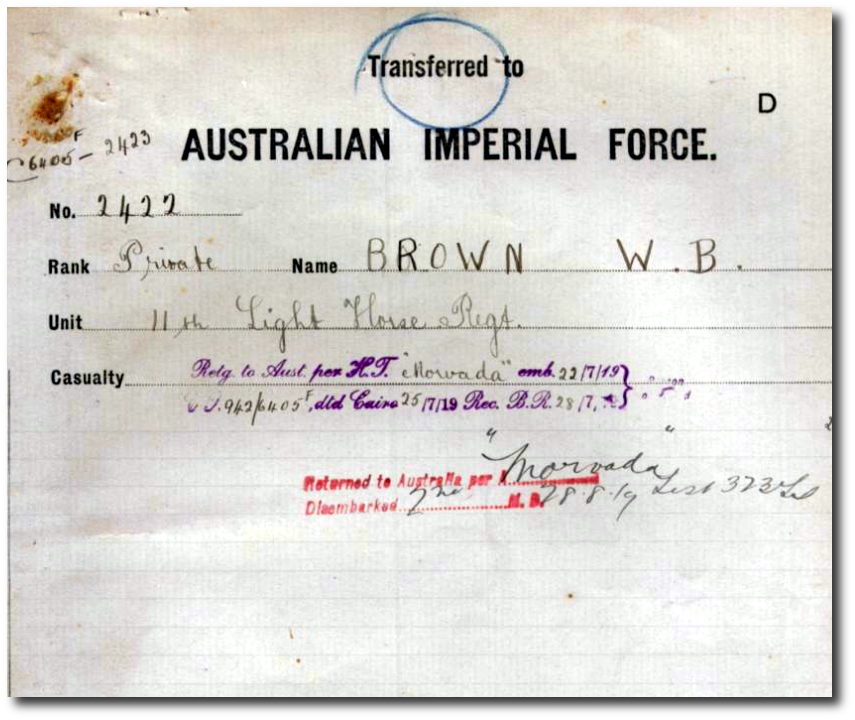 Transferred to
D
AUSTRALIAN IMPERIAL FORCE.
6405 F - 2423
No. 2422
Rank Private Name BROWN W. B.
Unit 11th Light Horse Regt.
Casualty Retg. to Aust. per H.T. "Morvada" emb. 22/7/19
942/6405 F, dtd Cairo 25/7/19 Rec. B.R. 28/7/
"Morvada"
Returned to Australia per
Disembarked 2nd M. D. 28.8.19 List 323